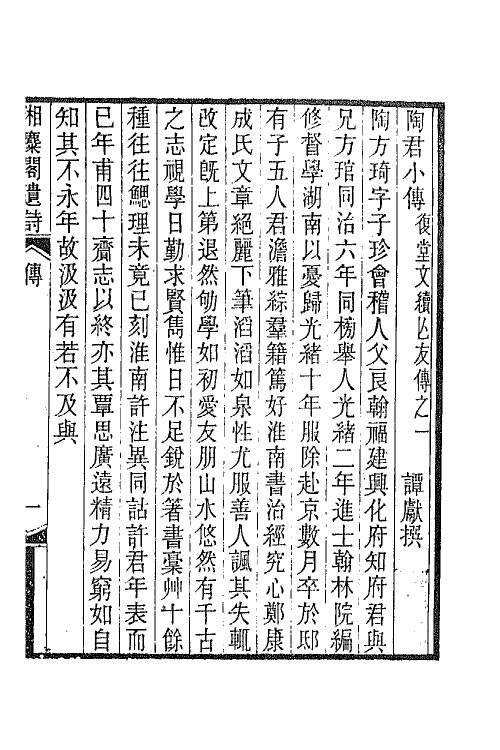 陶君小傳 復堂文續亾友傳之一 譚獻撰
陶方琦字子珍會稽人父良翰福建興化府知府君與
兄方琯同治六年同榜舉人光緒二年進士翰林院編
修督學湖南以憂歸光緒十年服除赴京數月卒於邸
有子五人君澹雅綜羣籍篤好淮南書治經究心鄭康
成氏文章絕麗下筆滔滔如泉性尤服善人諷其失輒
改定旣上第退然劬學如初愛友朋山水悠然有千古
之志視學日勤求賢雋惟日不足銳於箸書稾艸十餘
種往往鰓理未竟已刻淮南許注異同詁許君年表而
已年甫四十齎志以終亦其覃思廣遠精力易窮如自
知其不永年故汲汲有若不及與
湘麋閣遺詩 傳 一